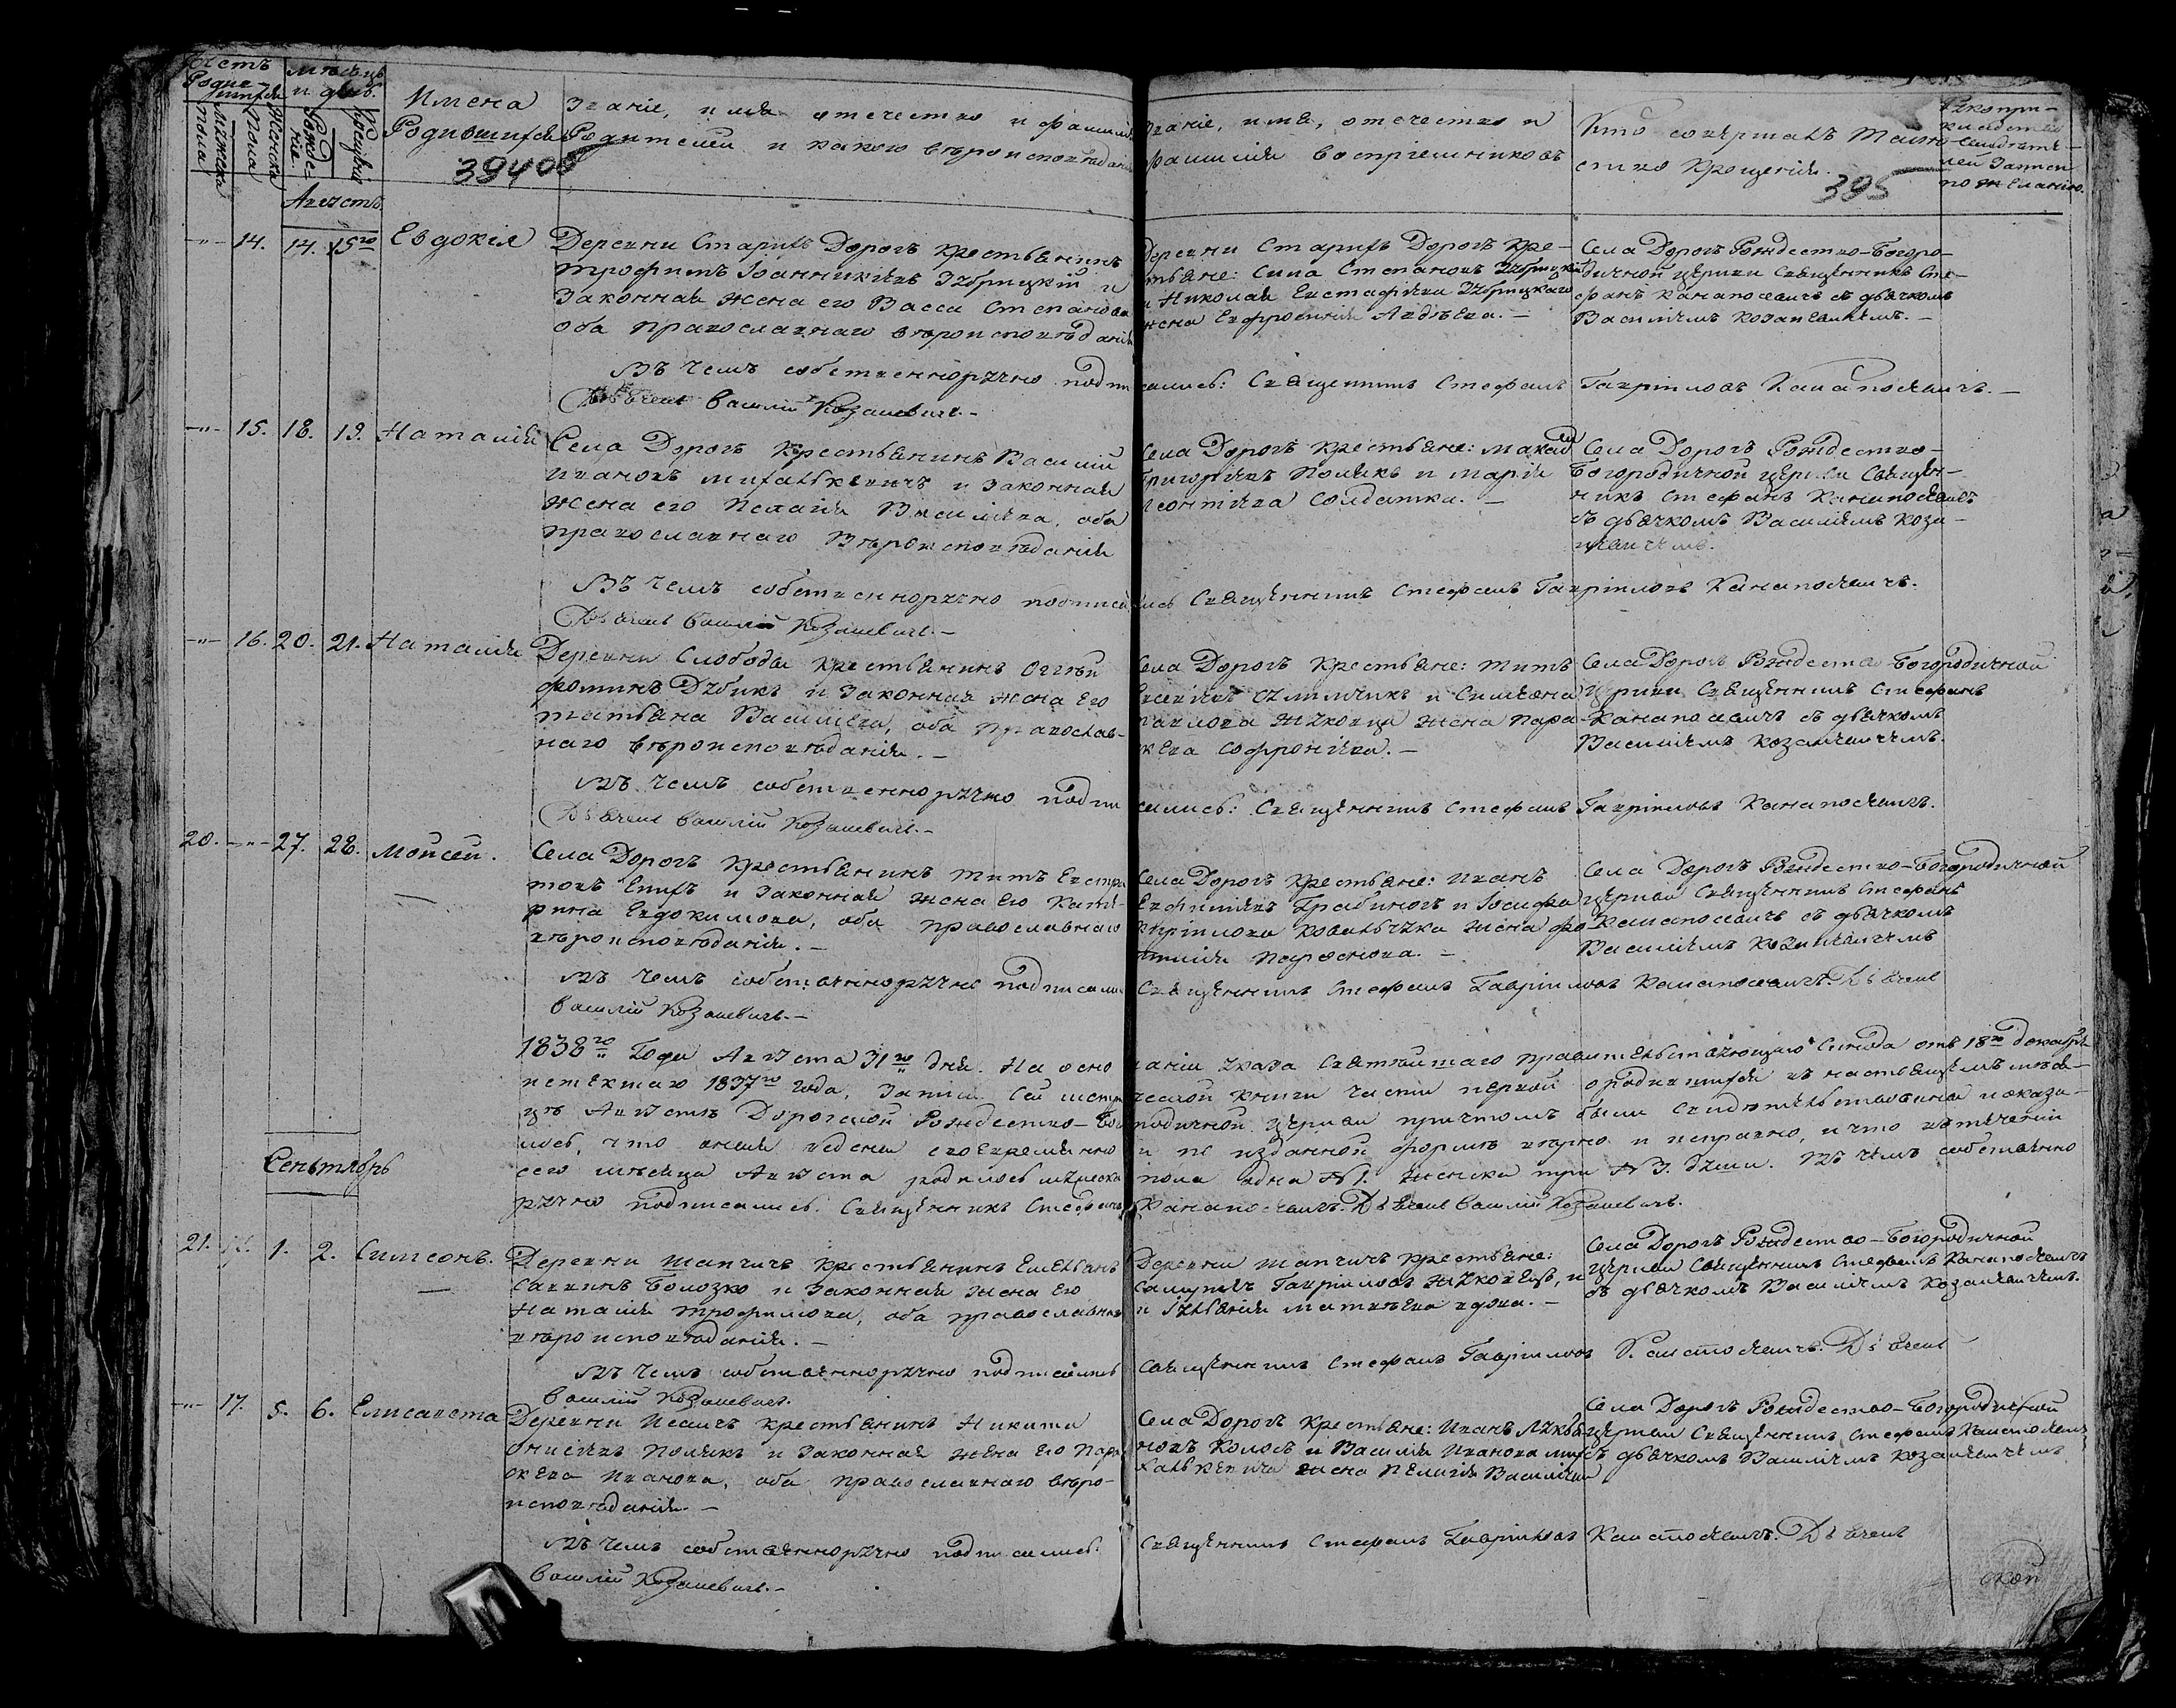 Счетъ
Родив-
шихся
Мѣсяцъ
и день.
Мужеска
пола
Женска
пола
Рожде-
нія.
Крещенія
Имена
Родившихся
394об
Званіе, имя отечество и фамилія
Родителей и какого вѣроисповѣданія
Званіе, имя, отечество и
фамилія воспріемниковъ
Кто совершалъ таин-
ство крещенія.
395
Рукопри-
кладство
свидѣте-
лей записи
по желанію.
Августъ
-"- 14. 14. 15го Евдокія
Деревни Старихъ Дорогъ крестьянинъ
Трофимъ Іоанникіевъ Збрицкій и
Законная жена его Васса Степанова
оба православнаго вѣроисповѣданія
Деревни Старихъ Дорогъ кре-
стьяне: Сила Степановъ Збрицкій
и Николая Евстафіева Збрицкаго
жена Евфросинія Авдѣева. –
Села Дорогъ Рождество-Богоро-
дичной церкви Священникъ Сте-
фанъ Канапасевичъ съ дьячкомъ
Василіемъ Козачевичемъ. –
Въ чемъ собственноручно подписались: Священникъ Стефанъ Гавріиловъ Канапасевичъ. –
Дьячекъ Василій Козачевичъ. –
-"- 15. 18. 19. Наталія
Села Дорогъ Крестьянинъ Василій
Ивановъ Михалькевичъ и законная
жена его Пелагія Василіева, оба
православнаго Вѣроисповѣданія
Села Дорогъ крестьяне:
Григоріевъ Полякъ и Марія
Леонтіева Солдатка. –
Села Дорогъ Рождество-
Богородичной церкви Священ-
никъ Стефанъ Канапасевичъ
съ дьячкомъ Василіемъ Коза-
чевичемъ.
Въ чемъ собственноручно подписались Священникъ Стефанъ Гавріиловъ Канапасевичъ.
Дьячекъ Василій Козачевичъ. –
-"- 16. 20. 21. Наталія
Деревни Слободы крестьянинъ Сергѣй
Фоминъ Дубикъ и Законная жена его
Татьяна Василіева, оба православ-
наго вѣроисповѣданія. –
Села Дорогъ крестьяне: Титъ
и Симеона
Павлова Жуковца жена Пара-
скева Софроніева. –
Села Дорогъ Рождество-Богородичной
церкви Священникъ Стефанъ
Канапасевичъ съ дьячкомъ
Василіемъ Козачевичемъ.
Въ чемъ собственноручно подписались: Священникъ Стефанъ Гавріиловъ Канапасевичъ.
Дьячекъ Василій Козачевичъ. –
20. -"- 27. 28. Мойсей.
Села Дорогъ крестьянинъ Титъ Евстра-
товъ Епихъ и Законная жена его Кате-
рина Евдокимова, оба православнаго
вѣроисповѣданія. –
Села Дорогъ крестьяне: Иванъ
Евфиміевъ Грабиновъ и Іосифа
Кирилова Ковальчука жена
Парфенова. –
Села Дорогъ Рождество-Богородичной
церкви Священникъ Стефанъ
Канапасевичъ съ дьячкомъ
Василіемъ Козачевичемъ
Въ чемъ собственноручно подписались Священникъ Стефанъ Гавріиловъ Канапасевичъ. Дьячекъ
Василій Козачевичъ. –
1838го Года Августа 31го дня. На основаніи указа Святѣйшаго правительствующаго Синода отъ 18го декабря
истекшаго 1837го года, записи сей метрической книги части первой о родившихся въ настоящемъ мѣся-
цѣ Августѣ Дорогской Рождество-Богородичной церкви причтомъ были свидѣтельствованы и оказа-
лось, что оныя ведены своевременно и по изданной формѣ вѣрно и исправно, и что въ теченіи
сего мѣсяца Августа родилось мужеска пола одна №1. женска три №3. души. Въ чемъ собственно
ручно подписались. Священникъ Стефанъ Канапасевичъ. Дьячекъ Василій Козачевичъ.
Сентябрь
21. -"- 1. 2. Симеонъ.
Деревни Шапчичъ крестьянинъ Емельянъ
Саввинъ Болозко и Законная жена его
Наталія Трофимова, оба православнаго
вѣроисповѣданія. –
Деревни Шапчичъ крестьяне:
Самуилъ Гавріиловъ Жуковецъ, и
Матвѣева вдова. –
Села Дорогъ Рождество-Богородичной
церкви Священникъ Стефанъ Канапасевичъ
съ дьячкомъ Василіемъ Козачевичемъ.
Въ чемъ собственноручно подписались Священникъ Стефанъ Гавріиловъ Канапасевичъ. Дьячекъ
Василій Козачевичъ.
-"- 17. 5. 6. Елисавета
Деревни крестьянинъ Никита
Онисіевъ Полякъ и Законная жена его Пара-
скева Иванова, оба православнаго вѣро-
исповѣданія. –
Села Дорогъ крестьяне: Иванъ Лукья-
новъ Колосъ и Василія Иванова Ми-
халькевича жена Пелагія Василіева
Села Дорогъ Рождество-Богородичной
церкви Священникъ Стефанъ Канапасевичъ
съ дьячкомъ Василіемъ Козачевичемъ
Въ чемъ собственноручно подписались. Священникъ Стефанъ Гавріиловъ Канапасевичъ. Дьячекъ
Василій Козачевичъ. –